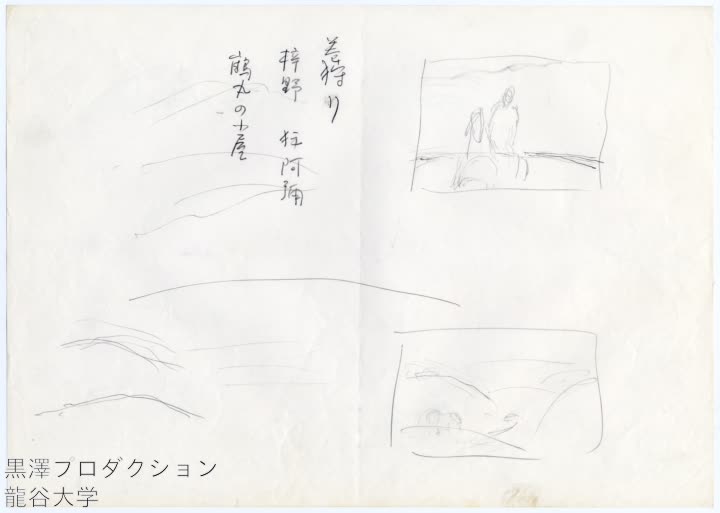 巻狩り
梓野 狂阿彌
鶴丸の小屋
黒澤プロダクション
龍谷大学